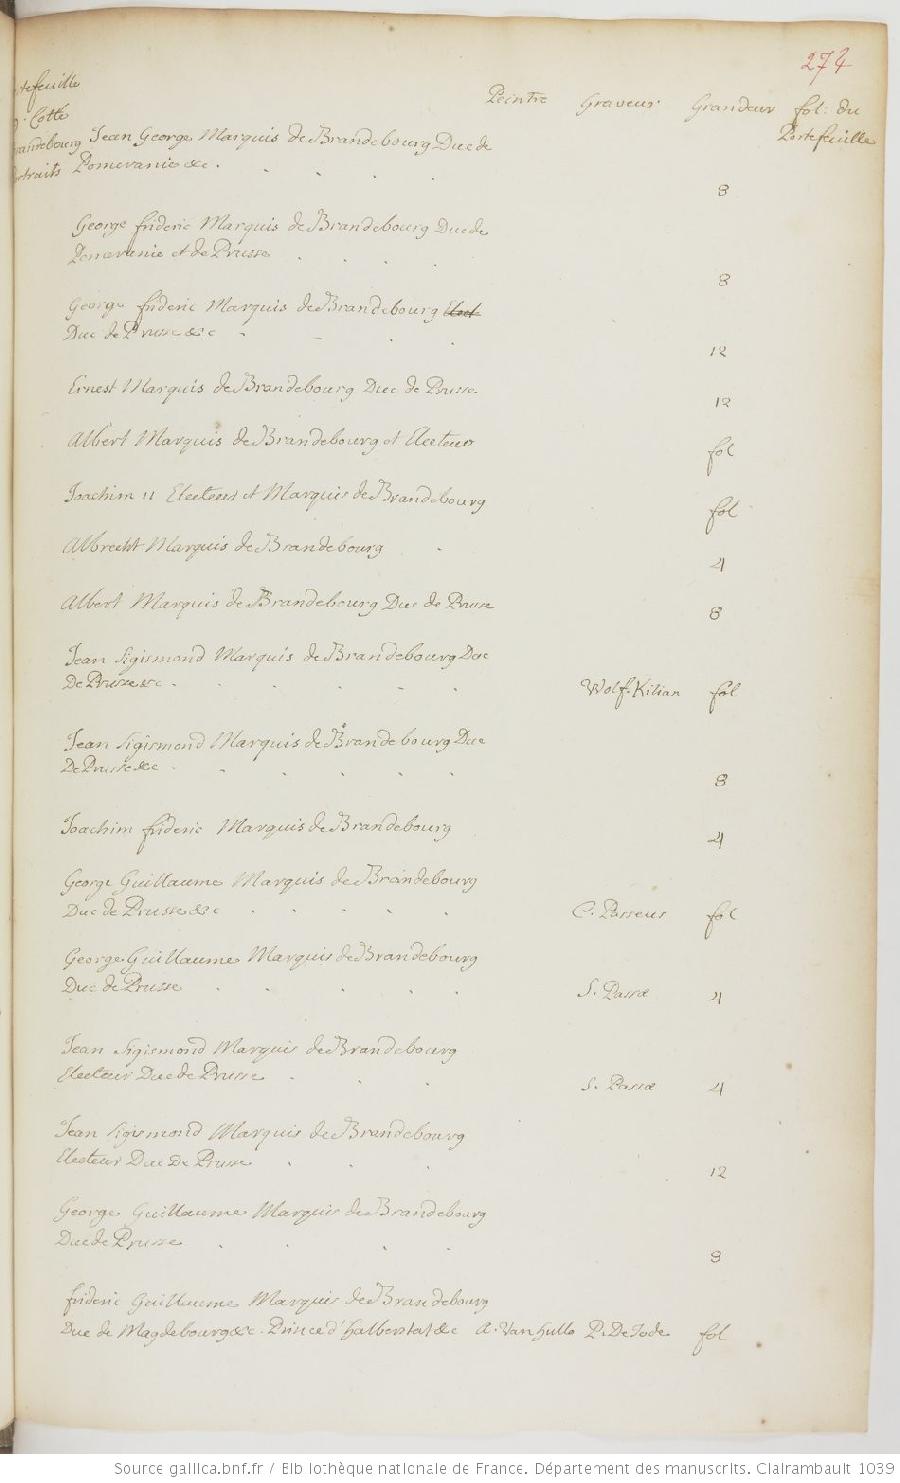 274
tefeuille
Peintre Graveur Grandeur fol: du
Portefeuille
Cotte
andebourg Jean George Marquis de Brandebourg Duc de
rtraits Pomeranie &c.
8
George frideric Marquis de Brandebourg Duc de
Pomeranie et de Prusse
8
George frideric Marquis de Brandebourg Elect
Duc de Prusse &c
12
Ernest Marquis de Brandebourg Duc de Prusse.
12
Albert Marquis de Brandebourg et Electeur
fol
Joachim 11 Electeur et Marquis de Brandebourg
fol
Albrecht Marquis de Brandebourg
4
Albert Marquis de Brandebourg Duc de Prusse
8
Jean Sigismond Marquis de Brandebourg Duc
De Prusse &c. Wolf. Kilian fol
Jean Sigismond Marquis de Brandebourg Duc
De Prusse &c
8
Joachim frideric Marquis de Brandebourg
4
George Guillaume Marquis de Brandebourg
Duc de Prusse &c C. Passeus fol
George Guillaume Marquis de Brandebourg
Duc de Prusse S. Passæ 4
Jean Sigismond Marquis de Brandebourg
Electeur Duc de Prusse S. Passæ 4
Jean Sigismond Marquis de Brandebourg
Electeur Duc De Prusse
12
George Guillaume Marquis de Brandebourg
Duc de Prusse
8
frideric Guillaume Marquis de Brandebourg
Duc de Magdebourg &c. Prince d'halberstat &c A. Van hulle P. De Jode fol
Source gallica.bnf.fr / Bibliothèque nationale de France. Département des manuscrits. Clairambault 1039